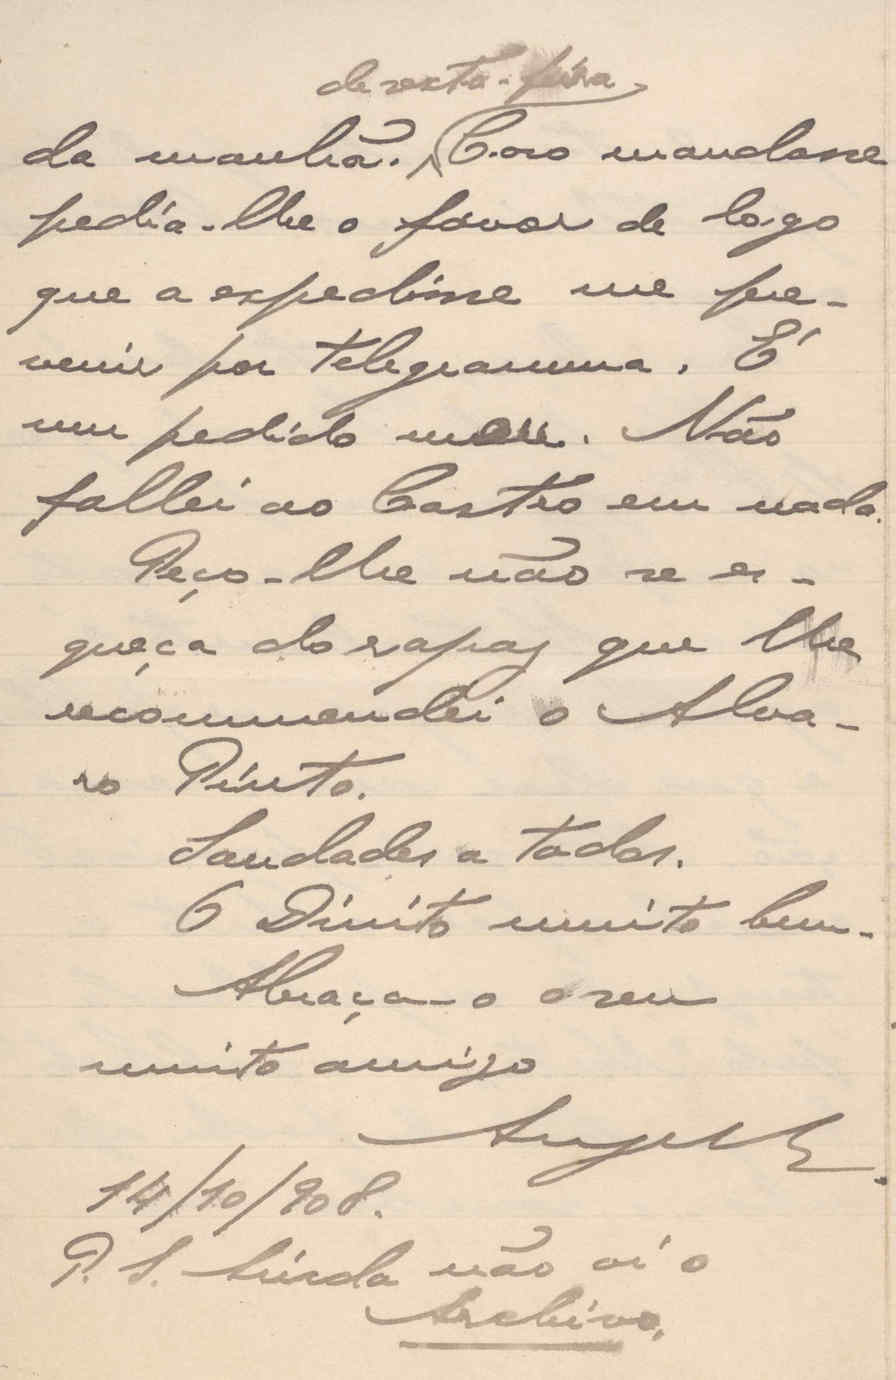 de sexta-feira
da manhã. Caso mandasse
pedia-lhe o favor de logo
que a expedisse me pre-
venir por telegramma. É
um pedido meu. Não
fallei ao Castro em nada.
Peço-lhe não se es-
queça do rapaz que lhe
recommendei o Alva-
ro Pinto.
Saudades a todos.
O Dinito muito bem.
Abraça-o o seu
muito amigo
14/10/908.
P. S. Ainda não vi o
Archivo.